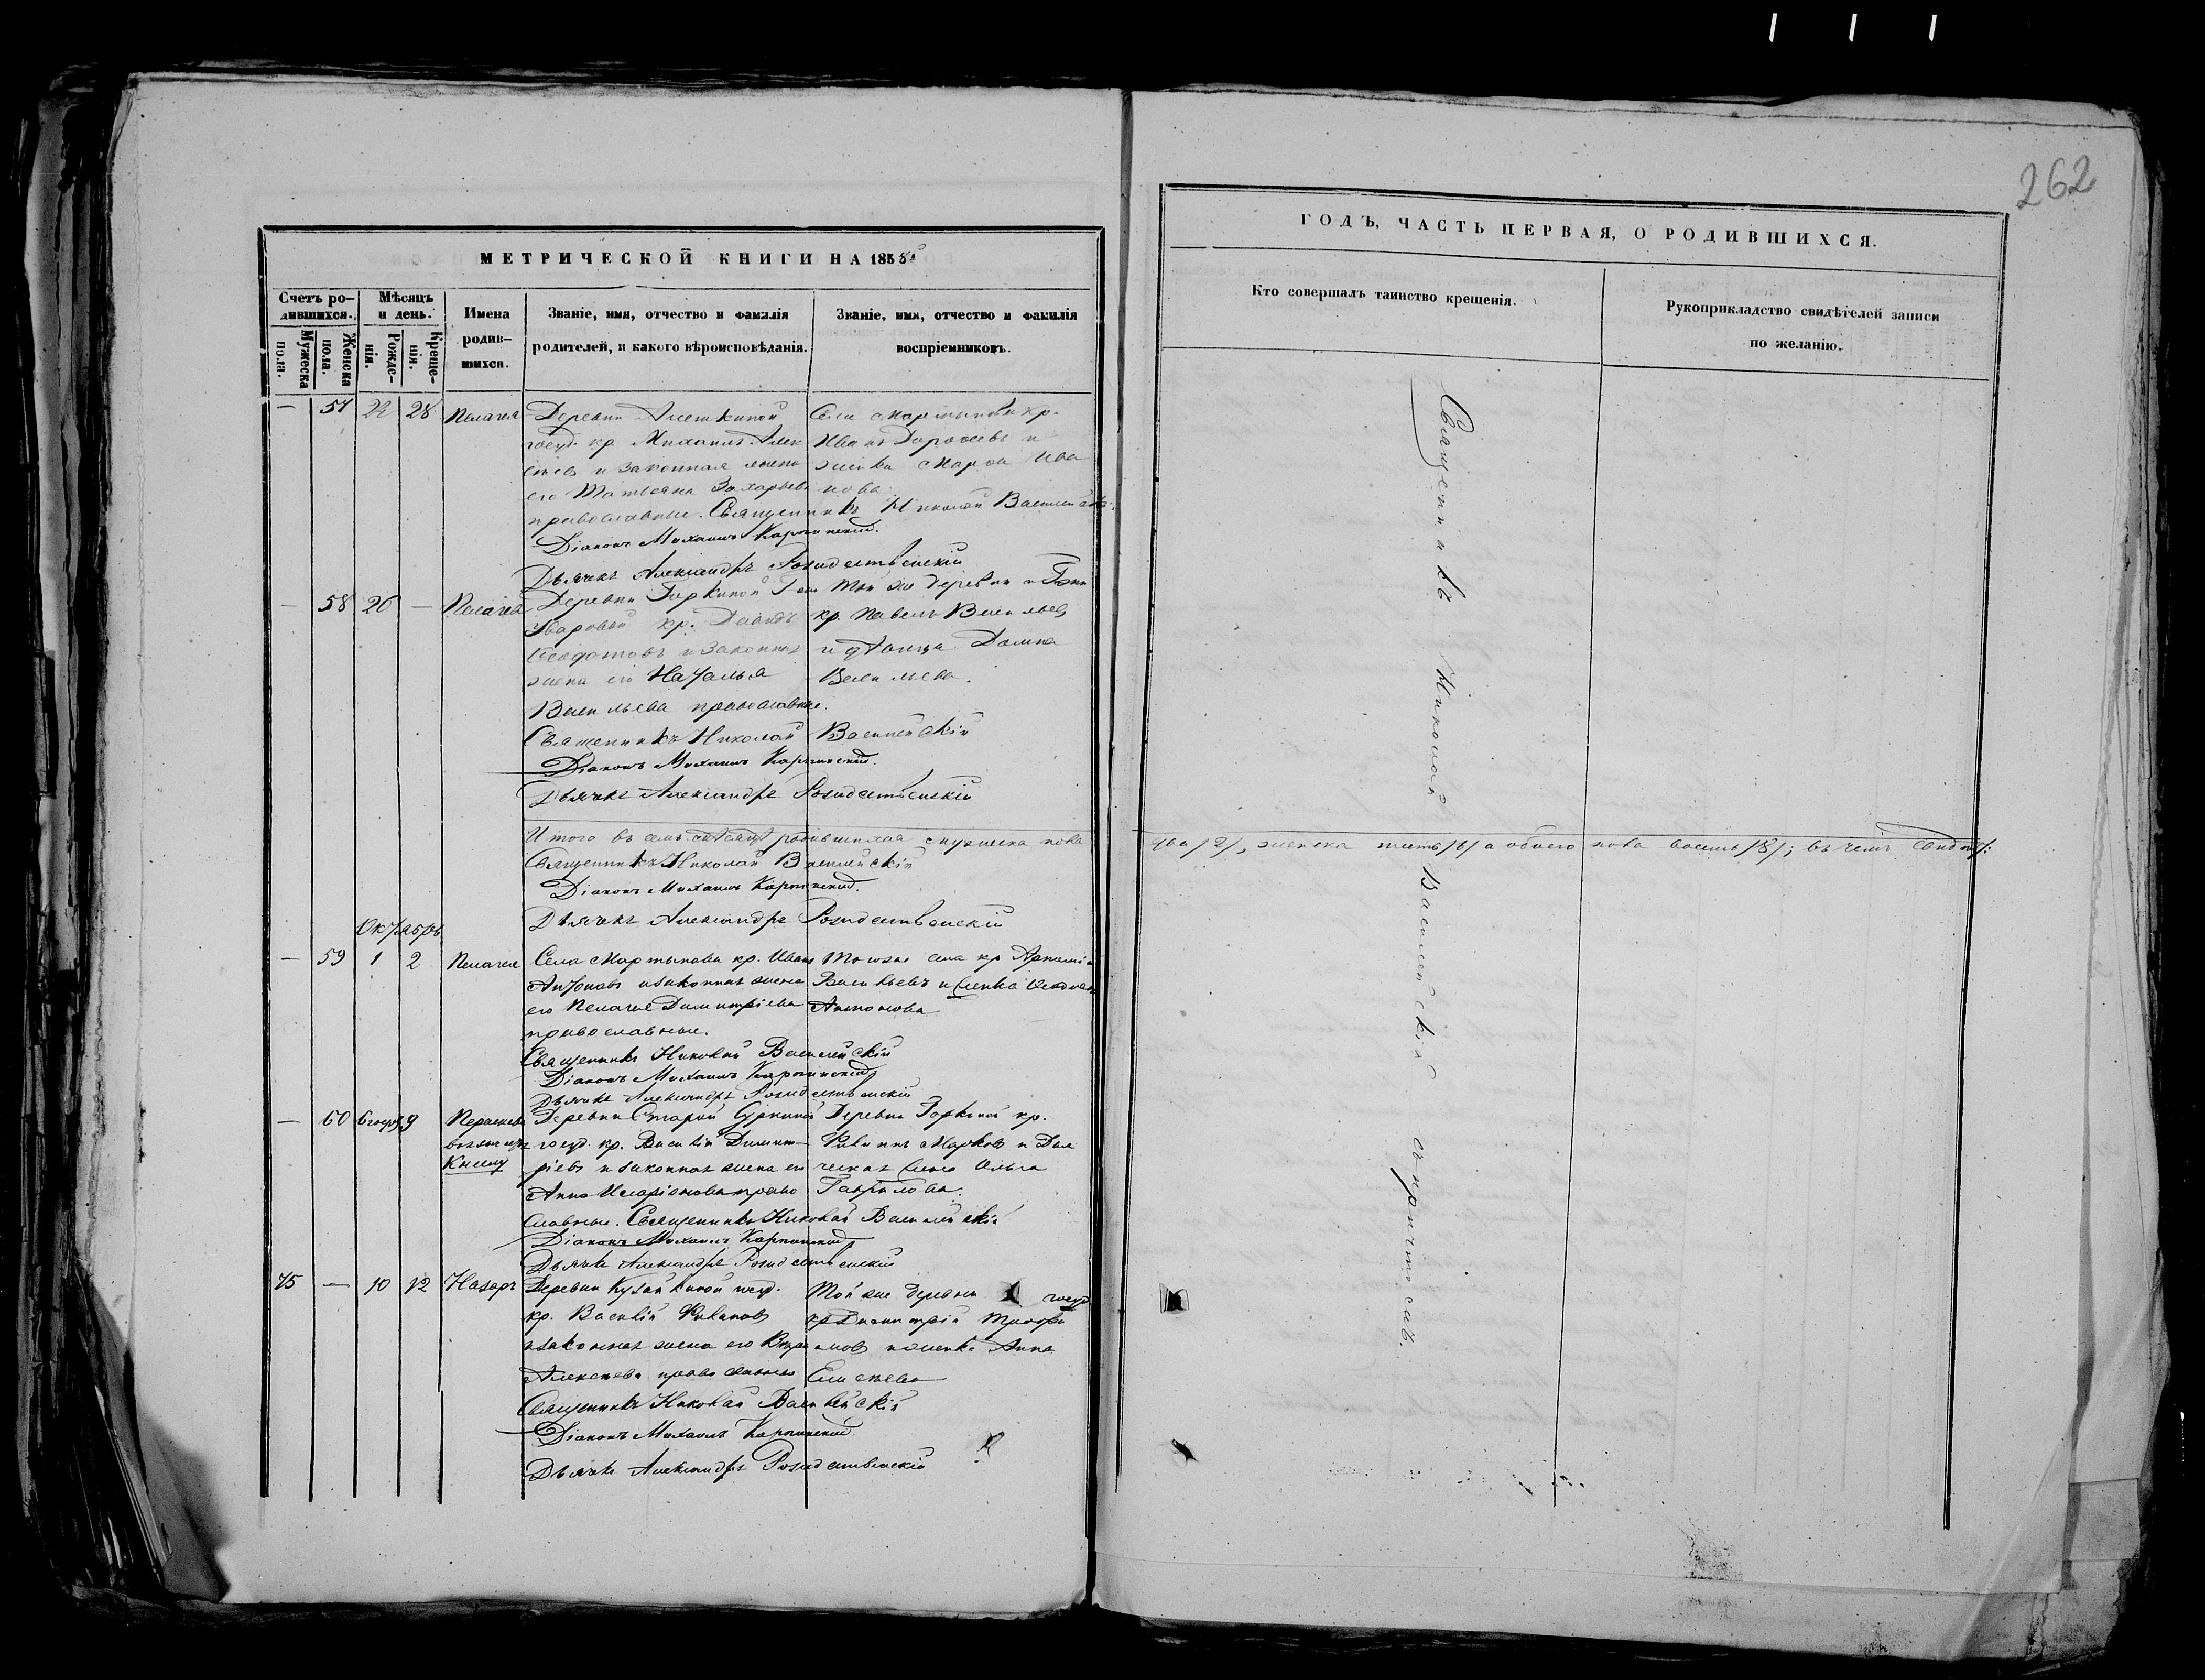 262
МЕТРИЧЕСКОЙ КНИГИ НА 1858
Счетъ ро-
дившихся.
Мужеска
пола.
Женска
пола.
Мѣсяцъ
и день.
Рожде-
нія.
Креще-
нія.
Имена
родив-
шихся.
Званіе, имя, отчество и фамилія
родителей, и какого вѣроисповѣданія.
Званіе, имя, отчество и фамилія
воспріемниковъ.
— 57 22 28 Пелагея
Деревни
госуд. кр. Михаилъ Алек
сѣевъ и законная жена
его Татьяна Захарьева
православные. Священникъ Николай Василейскій
Діаконъ Михаилъ Карпинскій.
Дьячекъ Александръ Рождественскій
Села Мартынова кр.
Иванъ и
женка Марфа Ива
нова
— 58 26 — Пелагея
Деревни Горкиной
Уваровой кр. Давидъ
Ѳеодотовъ и законная
жена его Наталья
Васильева православные.
Священникъ Николай Василейскій
Діаконъ Михаилъ Карпинскій.
Дьячекъ Александръ Рождественскій
Той же деревни
кр. Павелъ Васильевъ
и дѣвица Домна
Васильева.
Итого въ семъ мѣсяцѣ родившихся мужеска пола
два /2/, женска шесть /6/ а обоего пола восемь /8/; въ чемъ свидѣт:
Священникъ Николай Василейскій
Діаконъ Михаилъ Карпинскій.
Дьячекъ Александръ Рождественскій
Октябрь
— 59 1 2 Пелагея
Села Мартынова кр. Иванъ
Антоновъ и законная жена
его Пелагея Димитріева
православные.
Священникъ Николай Василейскій
Діаконъ Михаилъ Карпинскій
Дьячекъ Александръ Рождественскій
Тогоже села кр
Васильевъ и
Антонова
— 60 6 9
Книгу
Деревни Старой
госуд. кр. Василій Димит-
ріевъ и законная жена его
Анна Иларіонова право
славные. Священникъ Николай Василейскій
Діаконъ Михаилъ Карпинскій
Дьячекъ Александръ Рождественскій
Деревни Горкиной кр.
Марковъ и Дья
ческая Ольга
Гаврилова.
75 — 10 12 Назаръ
Деревни госуд.
кр. Василій
и законная жена его
Алексѣева православные
Священникъ Николай Василейскій
Діаконъ Михаилъ Карпинскій
Дьячекъ Александръ Рождественскій
Той же деревни госуд
кр Димитрій Трофи
мовъ и женка Анна
Елисѣева
ГОДЪ, ЧАСТЬ ПЕРВАЯ, О РОДИВШИХСЯ.
Кто совершалъ таинство крещенія.
Рукоприкладство свидѣтелей записи
по желанію.
Священникъ Николай Василейскій съ причтомъ.